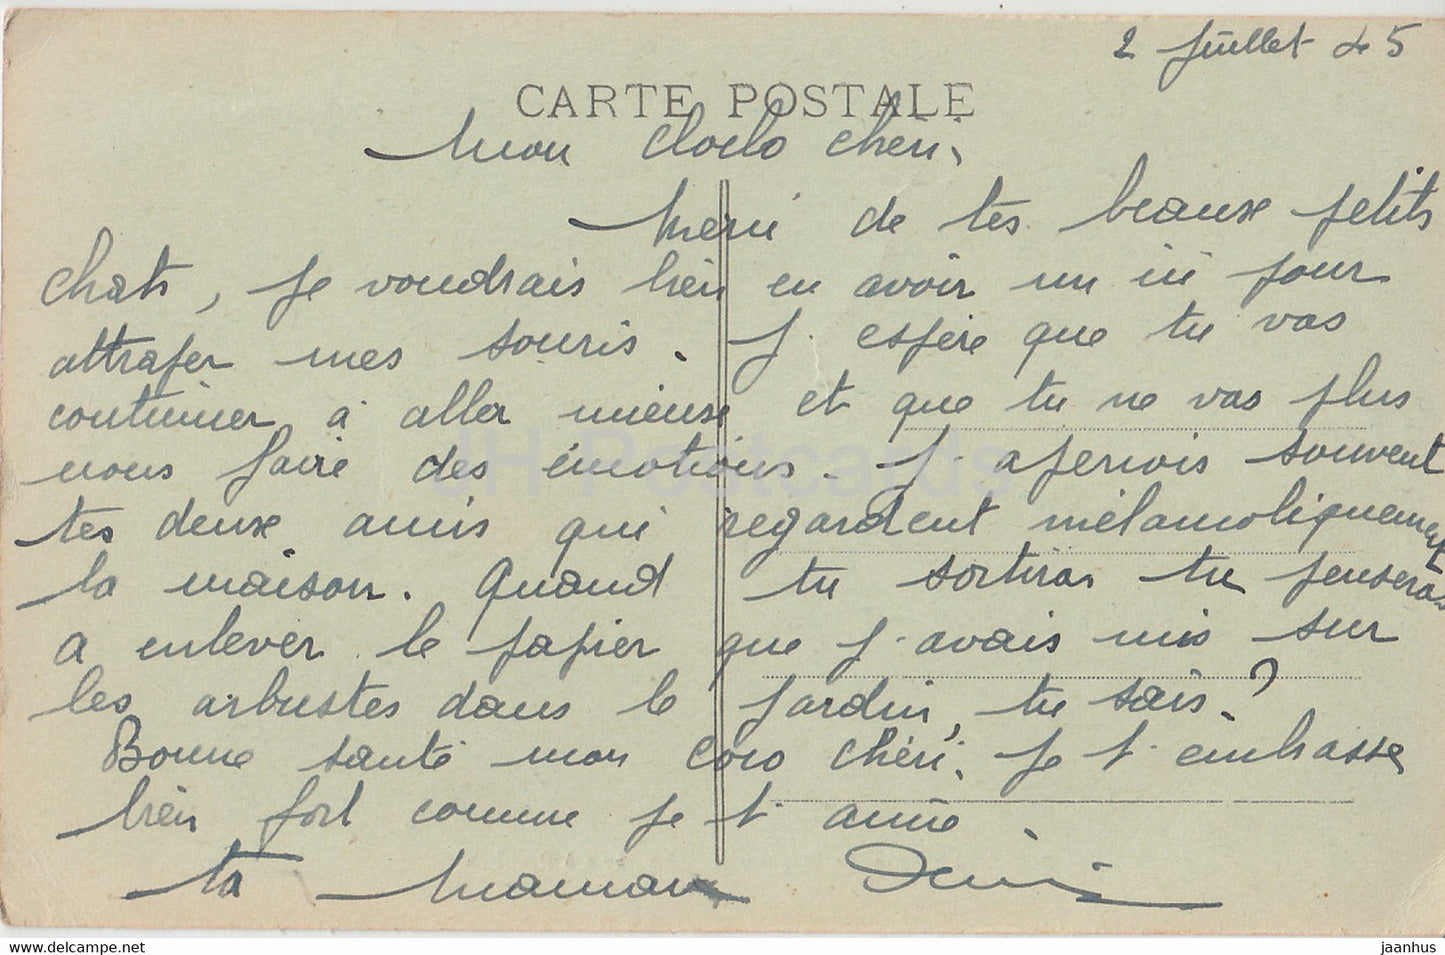 2 Juillet 45
CARTE POSTALE
Mon Cloclo chéri,
Merci de tes beaux petits
chats, Je voudrais bien en avoir un ici pour
attraper mes souris. J'espère que tu vas
continuer à aller mieux et que tu ne vas plus
nous faire des émotions. J'aperçois souvent
tes deux amis qui regardent mélancoliquement
la maison. Quand tu sortiras tu penseras
a enlever le papier que j'avais mis sur
les arbustes dans le jardin, tu sais?
Bonne santé mon Coco chéri. Je t'embrasse
bien fort comme je t'aime.
ta Maman
JH Postcards
https://jhpostcards.net
jaanhus